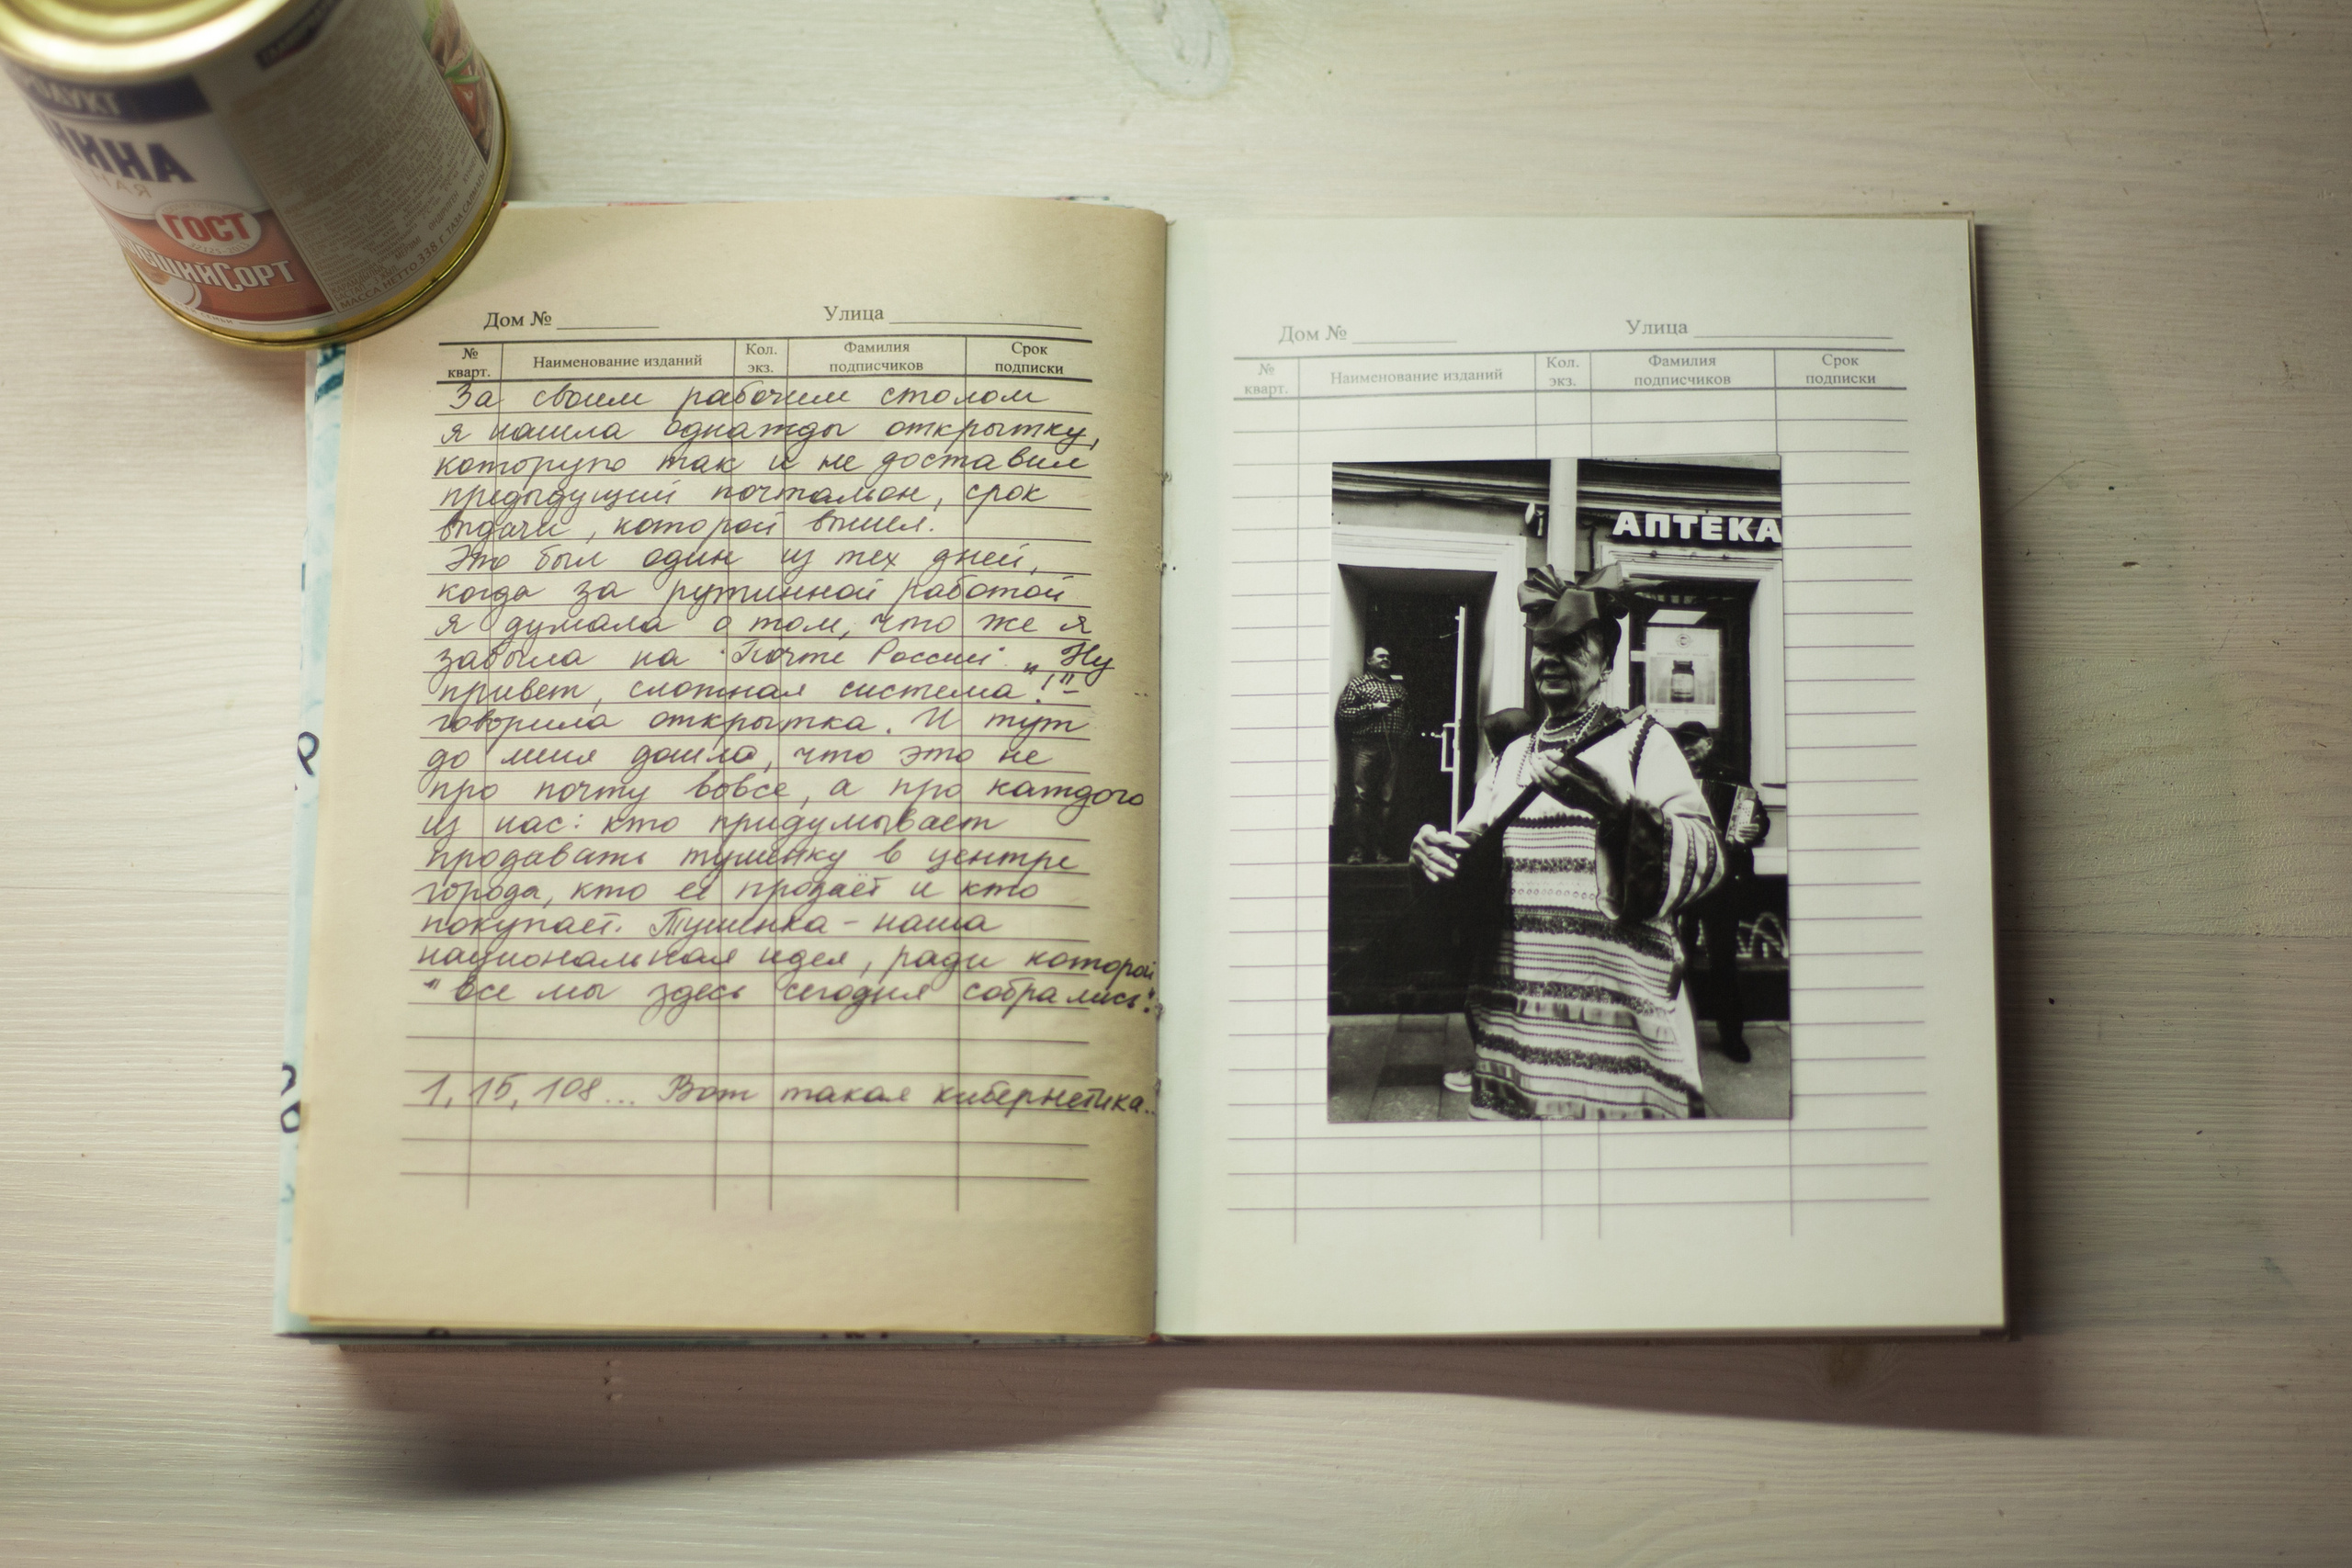 ПРОДУКТ
НИНА
ГОСТ
ВЫСШИЙ СОРТ
МАССА НЕТТО 338 Г
Дом № Улица
№ кварт. Наименование изданий Кол. экз. Фамилия подписчиков Срок подписки
За своим рабочим столом
я нашла однажды открытку,
которую так и не доставил
предыдущий почтальон, срок
выдачи, которой вышел.
Это был один из тех дней,
когда за рутинной работой
я думала о том, что же я
забыла на "Почте России". „Ну
привет, сложная система!" -
говорила открытка. И тут
до меня дошло, что это не
про почту вовсе, а про каждого
из нас: кто придумывает
продавать тушенку в центре
города, кто её продаёт и кто
покупает. Тушенка - наша
национальная идея, ради которой
"все мы здесь сегодня собрались".
1, 15, 108... Вот такая кибернетика..
Дом № Улица
№ кварт. Наименование изданий Кол. экз. Фамилия подписчиков Срок подписки
АПТЕКА